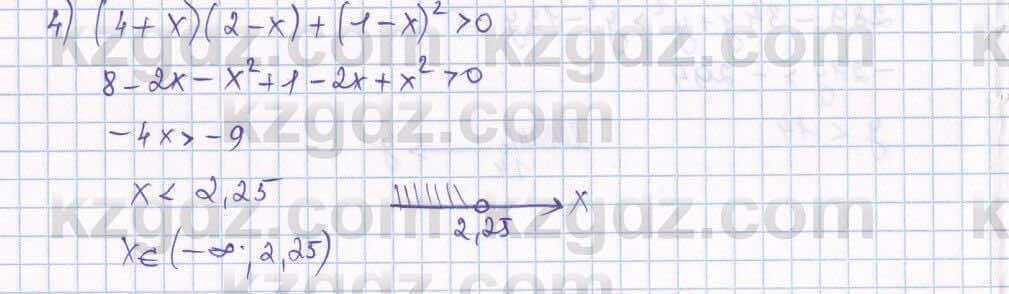 4) (4+x)(2-x)+(1-x)²>0
8-2x-x²+1-2x+x²>0
-4x>-9
x<2,25
x
2,25
x∈(-∞;2,25)
kzgdz.com
kzgdz.com
kzgdz.com
kzgdz.com
kzgdz.com